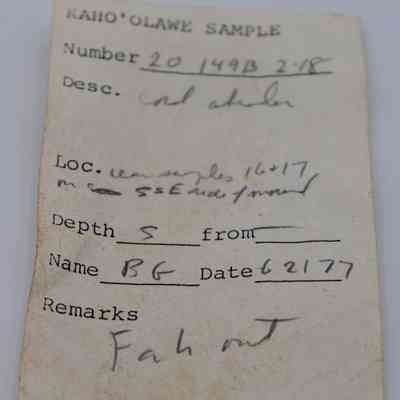 KAHO'OLAWE SAMPLE
Number 20 149B 2-18
Desc.
Loc. near samples 16+17
on SSE side of mound
Depth S from
Name BG Date 6 21 77
Remarks
Fah out